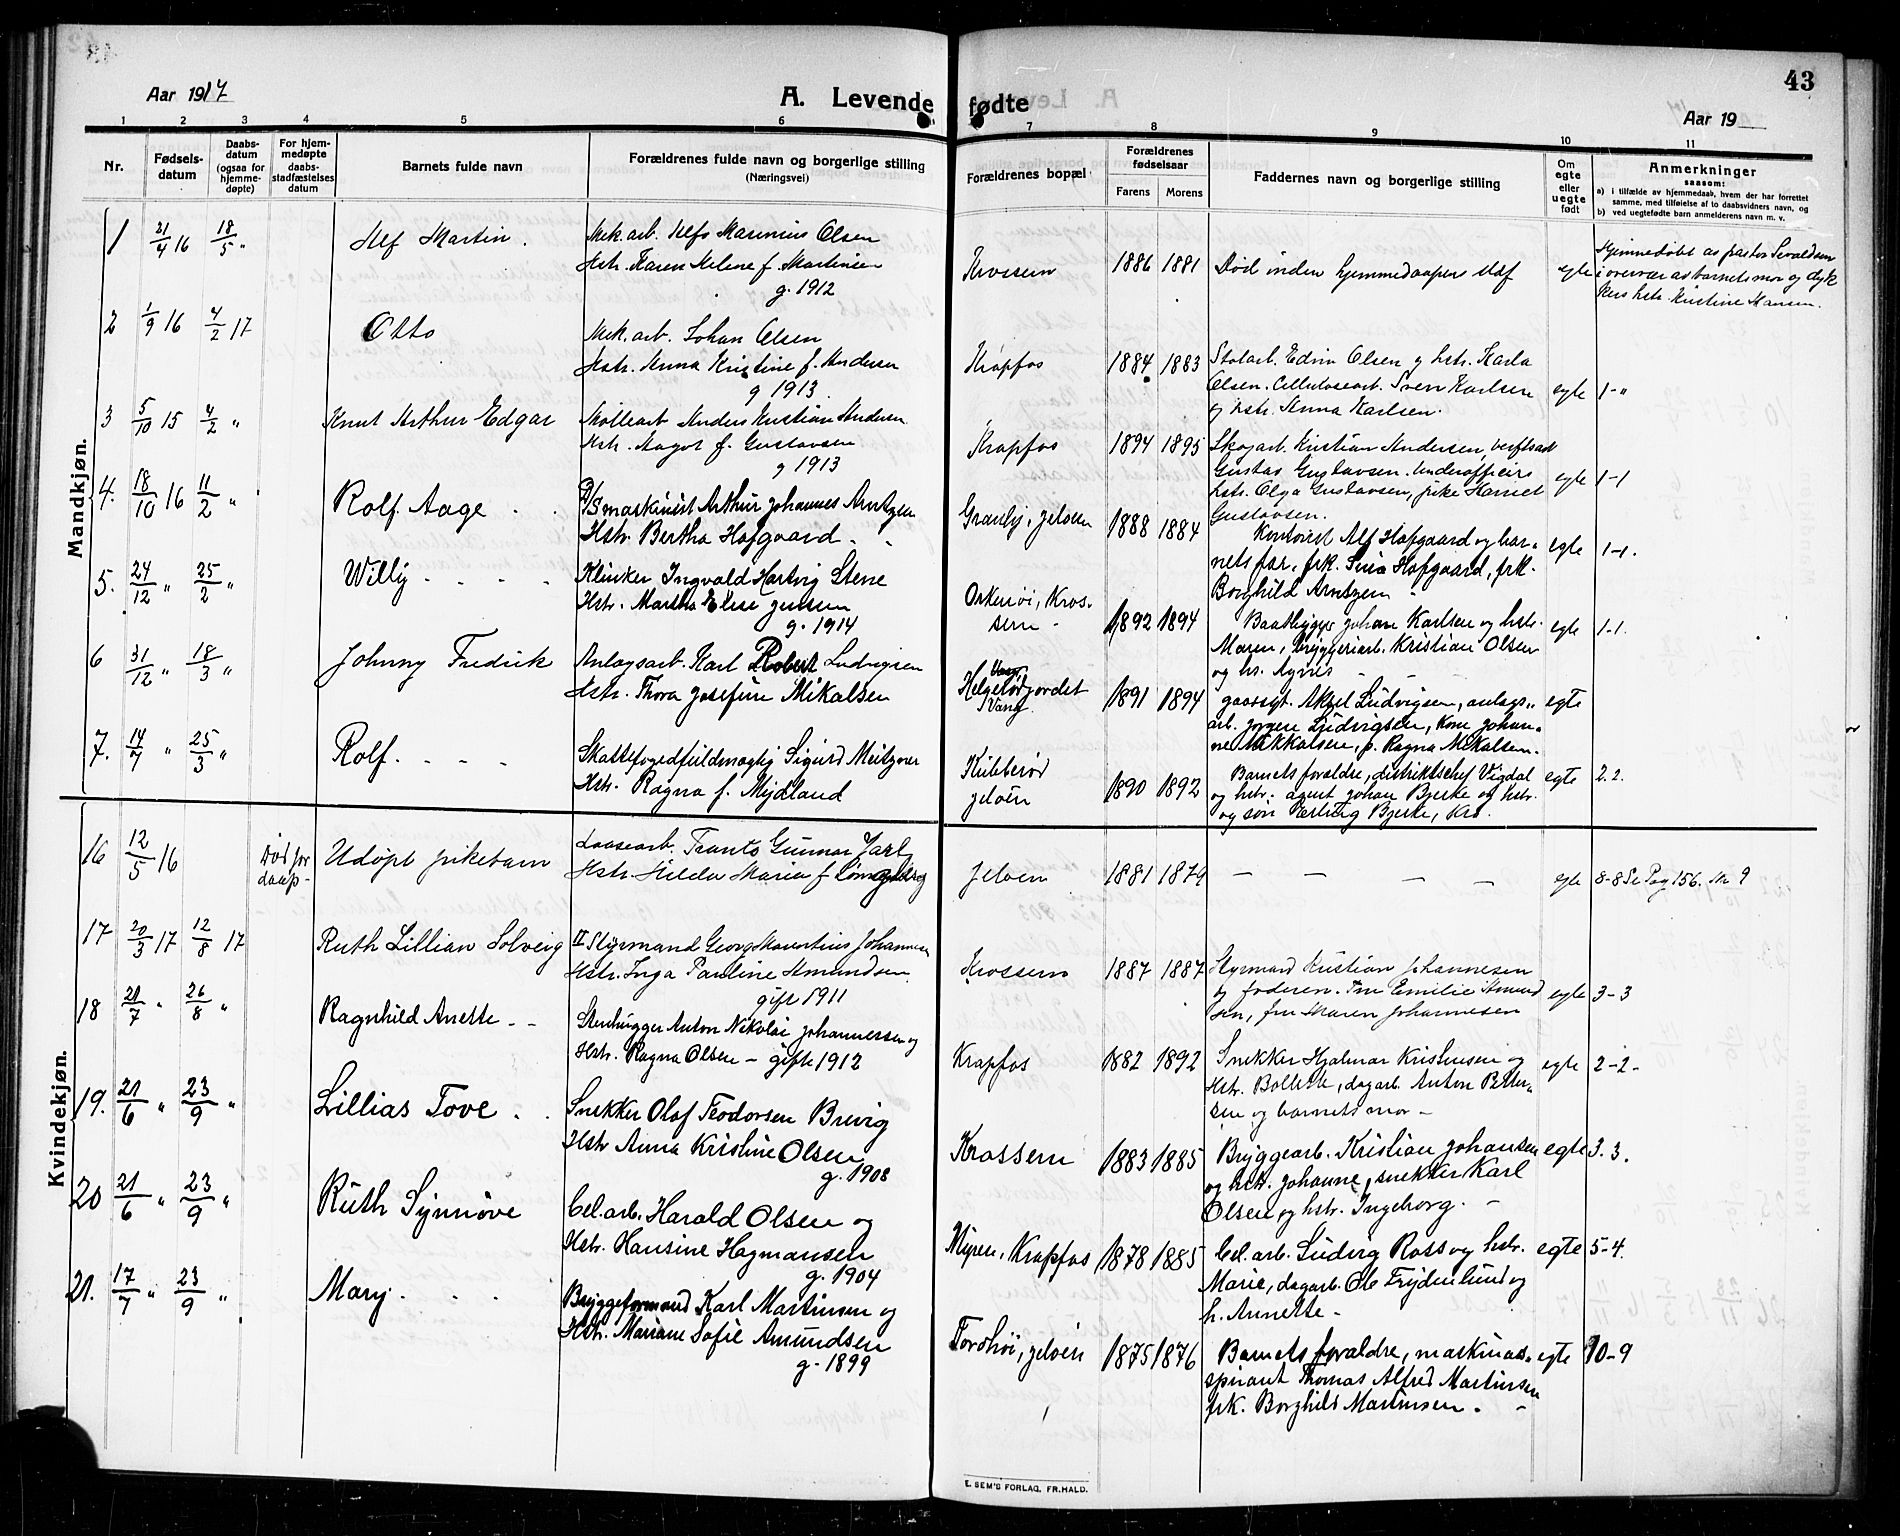 43
Aar 1917
A. Levende fødte
Aar 19
1 2 3 4 5 6 7 8 9 10 11
Nr.
Fødsels-
datum
Daabs-
datum
(ogsaa for
hjemme-
døpte)
For hjem-
medøpte
daabs-
stadfæstelses
datum
Barnets fulde navn
Forældrenes fulde navn og borgerlige stilling
(Næringsvei)
Forældrenes bopæl
Forældrenes
fødselsaar
Farens Morens
Faddernes navn og borgerlige stilling
Om
egte
eller
uegte
født
Anmerkninger
saasom:
a) i tilfælde av hjemmedaab, hvem der har forrettet
samme, med tilføielse af to daabsvidners navn, og
b) ved uegtefødte barn anmelderens navn m. v.
Mandkjøn.
1 21/4 16 18/5 "
Alf Martin.
Mek. arb. Alfs Marinius Olsen
Hstr. Karen Helene f. Martinsen
g. 1912
Krossern
1886 1881
Død inden hjemmedaapens stadf
egte
Hjemmedøbt av pastor Sevaldsen
i overvær av barnets mor og dyk
kers hstr. Kristine Hansen.
2 1/9 16 4/2 17
Otto
Mek. arb. Johan Olsen
Hstr. Anna Kristine f. Andersen
g 1913.
Krapfos
1884 1883
Stolarb. Edvin Olsen g hstr. Karla
Olsen. Cellulosearb. Sven Karlsen
og hstr. Anna Karlsen.
egte
1-"
3 5/10 15 4/2 "
Knut Arthur Edgar
Møllearb Anders Kristian Andersen
Hstr. Magot f. Gustavsen
g 1913
Krapfos
1894 1895
Skogarb. Kristian Andersen, verftsarb
Gustav Gustavsen. Underofficers
hstr. Olga Gustavsen, pike Harriet
Gustavsen.
egte
1-1
4. 18/10 16 11/2 "
Rolf Aage
D/S maskinist Arthur Johannes Arntzen
Hstr. Bertha Hofgaard
Granly, Jeløen
1888 1884
Kontorist Alf Hofgaard og bar-
nets far, frk. Signe Hofgaard, frk.
Borghild Arntzen
egte
1-1.
5. 24/12 " 25/2 "
Willy
Klinker Ingvald Hartvig Stene
Hstr. Martha Elise Jensen
g. 1914
Orkerøi, Kros-
sern
1892 1894
Baatbygger Johan Karlsen og hstr.
Maren, bryggeriarb. Kristian Olsen
og hs. Agnes
egte
1-1.
6 31/12 " 18/3 "
Johnny Fredrik
Anlagsarb. Karl Robert Ludvigsen
Hstr. Thora Josefine Mikalsen
Vang
Helgerødjordet
Vang.
1891 1894
gaarsgt. Aksel Ludvigsen, anlags-
arb. Jørgen Ludvigsen, Kone Johan-
ne Mikkalsen, p. Ragna Mikalsen.
egte
7. 14/7 " 25/3 "
Rolf.
Skattefogedfuldmægtig Sigurd Meitzner
Hstr. Ragna f. Mydland
Kubberød
Jeløen
1890 1892
Barnets forældre, distriktschef Vigdal
og hstr. agent Johan Bjerke og hstr.
og søn Erling Bjerke, Kra.
egte
2.2.
Kvindekjøn.
16 12/5 16
Død før
daap-
Udøpt pikebarn
Laasearb. Frants Gunnar Jarl
Hstr. Hilda Maria f Lønngberg
Jeløen
1881 1879
egte
8-8 Se Pag 156. nr 9
17 20/3 17 12/8 17
Ruth Lillian Solveig
II Styrmand Georg Mauritius Johannesen
Hstr. Inga Pauline Amundsen
gift 1911
Krossern
1887 1887
Styrmand Kristian Johannesen
og foderen. Fru Emilie Amund
sen, fru Maren Johannesen
egte
3-3
18 21/7 " 26/8 "
Ragnhild Anette
Stenhugger Anton Nikolai Johannessen og
Hstr. Ragna Olsen - gifte 1912
Krapfos
1882 1892
Snekker Hjalmar Kristensen og
Hstr. Bollette, dagarb. Anton Petter-
sen og barnets mor -
egte
2-2-
19. 21/6 " 23/9 "
Lillias Tove
Snekker Olaf Teodorsen Brevig
Hstr Anna Kristine Olsen
g. 1908
Krossern
1883 1885
Bryggearb. Kristian Johansen
og hstr. Johanne, snekker Karl
Olsen og hstr. Ingeborg. -
egte
3.3.
20 21/6 " 23/9 "
Ruth Synnøve
Cel. arb. Harald Olsen og
Hstr. Hansine Hagmansen
g. 1904
Myren, Krapfos
1878 1885
Cel. arb. Ludvig Ross og hstr.
Marie, dagarb. Ole Frydenlund og
h. Annette-
egte
5-4.
21. 17/7 " 23/9 "
Mary.
Bryggeformand Karl Martinsen og
Hstr. Mariane Sofie Amundsen
g. 1899
Torshøi, Jeløen
1875 1876
Barnets forældre, maskinas-
spirant Thomas Alfred Martinsen
frk. Borghild Martinsen.
egte
10-9
E. SEM'S FORLAG, FR.HALD.